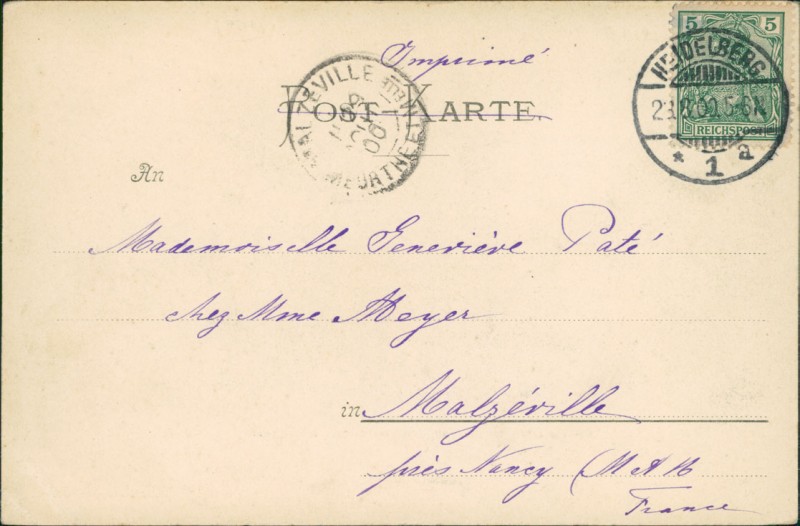 Imprimé
POST-KARTE.
5 5
HEIDELBERG
5-6N
REICHSPOST
* 1 a
MALZEVILLE
MEURTHE ET
An
Mademoiselle Geneviève Paté
chez Mme Meyer
in Malzéville
près Nancy (M & M
France